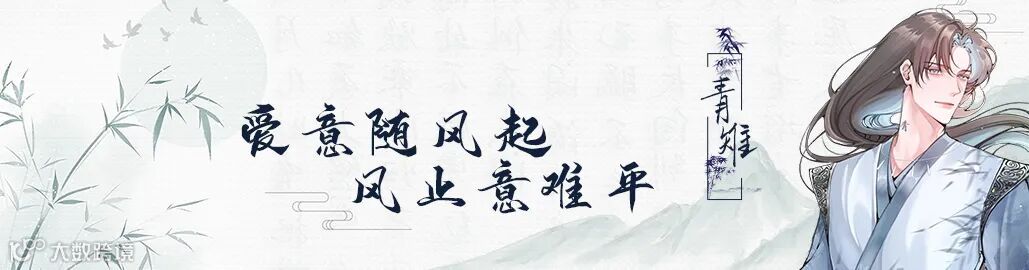 爱意随风起
风止意难平
青雉
青
大数跨境